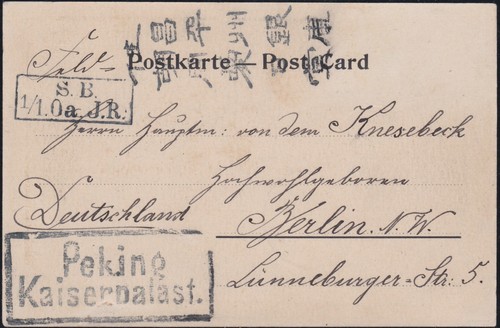 Feld=
Postkarte — Post Card
S. B.
1/1. Oa. J.R.
Herrn Hauptm: von dem Knesebeck
Hochwohlgeboren
Deutschland
Berlin. N.W.
Lünneburger-Str: 5.
Peking
Kaiserpalast.